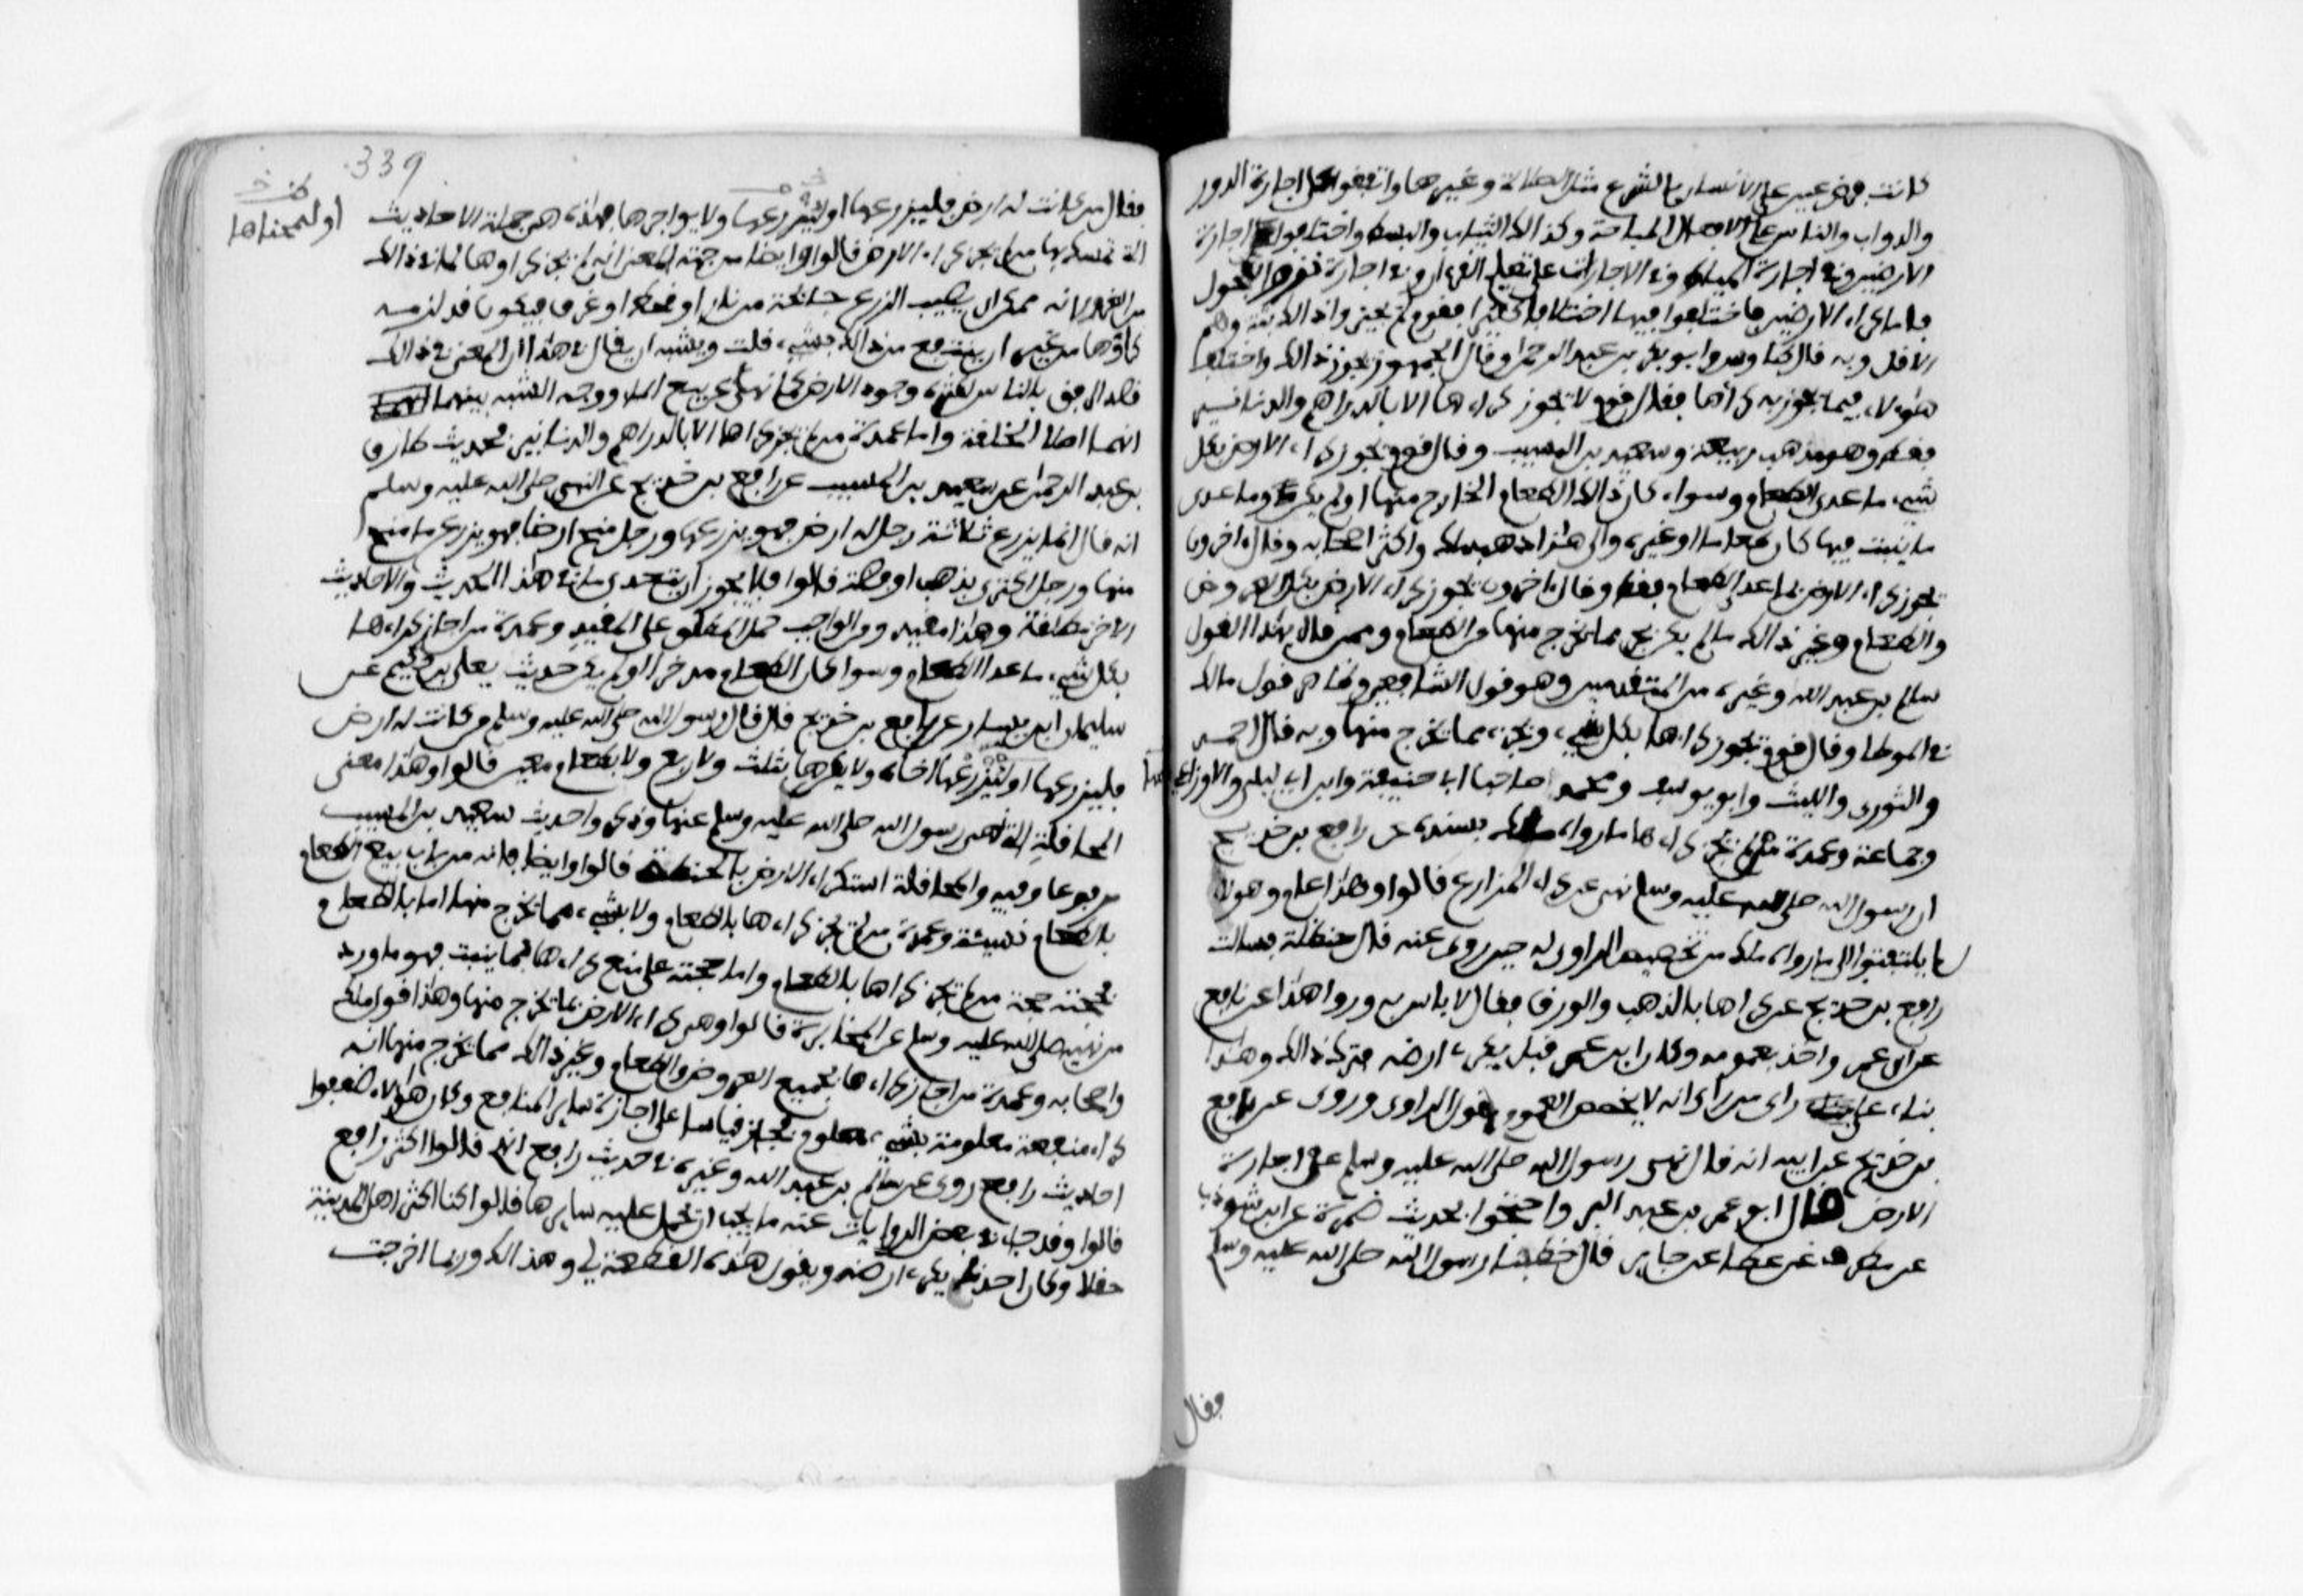 كانت فرض عين على الانسان بالشرع مثل الصلاة وغيرها واتفقوا على اجارة الدور
والدواب والناس على الافعال المباحة وكذالك الثياب والبسط واختلفوا في اجارة
الارضين وفي اجارة المياه وفي الاجارات على تعليم القرءان وفي اجارة نزو الفحول
فاما كراء الارضين فاختلفوا فيها اختلافا كثيرا فقوم لم يجيزوا ذالك بتة وهم
الاقل وبه قال طاوس وابو بكر بن عبد الرحمن وقال الجمهور بجواز ذالك واختلف
هؤلاء فيما يجوز به كراها فقال قوم لا يجوز كراءها الا بالدراهم والدنانير
فقط وهو مذهب ربيعة وسعيد بن المسيب وقال قوم يجوز كراء الارض بكل
شيء ما عدى الطعام وسواء كان ذالك الطعام الخارج منها او لم يكن وما عدى
ما ينبت فيها كان طعاما او غيره والى هذا ذهب ملك واكثر اصحابه وقال ءاخرون
يجوز كراء الارض بما عدا الطعام فقط وقال ءاخرون يجوز كراء الارض بكل العروض
والطعام وغير ذالك ما لم يكن بجزء مما يخرج منها من الطعام وممن قال بهذا القول
سالم بن عبد الله وغيره من المتقدمين وهو قول الشافعي وظاهر قول مالك
في الموطا وقال قوم يجوز كراءها بكل شيء وبجزء مما يخرج منها وبه قال احمد
والثوري والليث وابو يوسف ومحمد صاحبا ابي حنيفة وابن ابي ليلى والاوزاعي
وجماعة وعمدة من لم يجز كراءها ما رواه ملك بسنده عن رافع بن خديج
ان رسول الله صلى الله عليه وسلم نهى عن كراء المزارع قالوا وهذا عام وهولاء
لم يلتفتوا الى ما رواه ملك من تخصيص الراوي له حين روى عنه قال حنظلة فسالت
رافع بن خديج عن كراها بالذهب والورق فقال لا باس به وروا هذا عن رافع
عن ابن عمر واخذ بعمومه وكان ابن عمر قبل يكرى ارضه فترك ذالك وهذا
بناء على راى من راى انه لا يخصص العموم بقول الراوى وروى عن رافع
بن خديج عن ابيه انه قال نهى رسول الله صلى الله عليه وسلم عن اجارة
الارض قال ابو عمر بن عبد البر واحتجوا بحديث ضمرة عن ابن شوذب
عن مطرف عن عطا عن جابر قال خطبنا رسول الله صلى الله عليه وسلم
فقال
339
فقال من كانت له ارض فليزرعها او ليزرعها ولا يواجرها فهذه هي جملة الاحاديث
التي تمسك بها من لم يجز كراء الارض قالوا وايضا من جهة المعنى انه لم يجز كراوها لما في ذالك
من الغرر لانه ممكن ان يصيب الزرع جائحة من نار او قحط او غرق فيكون قد لزمه
كراؤها من غير ان ينتفع من ذالك بشيء قلت ويشبه ان يقال في هذا ان المعنى في ذالك
قصد الرفق بالناس لكثرة وجود الارض كما نهى عن بيع الماء ووجه الشبه بينهما
انهما اصلا الخلقة واما عمدة من لم يجز كراها الا بالدراهم والدنانير فحديث طارق
بن عبد الرحمن عن سعيد بن المسيب عن رافع بن خديج عن النبي صلى الله عليه وسلم
انه قال انما يزرع ثلاثة رجل له ارض فهو يزرعها ورجل منح ارضا فهو يزرع ما منح
منها ورجل اكترى بذهب او فضة قالوا فلا يجوز ان يتعدى ما في هذا الحديث والاحاديث
الاخر مطلقة وهذا مقيد ومن الواجب حمل المطلق على المقيد وعمدة من اجاز كراءها
بكل شيء ما عدا الطعام وسوا كان الطعام مدخرا او لم يكن حديث يعلى بن حكيم عن
سليمان ابن يسار عن رافع بن خديج قال قال رسول الله صلى الله عليه وسلم من كانت له ارض
فليزرعها او ليزرعها اخاه ولا يكرها بثلث ولا ربع ولا بطعام معين قالوا وهذا معنى
المحاقلة التي نهى رسول الله صلى الله عليه وسلم عنها وذكروا حديث سعيد بن المسيب
مرفوعا وفيه والمحاقلة استكراء الارض بالحنطة قالوا وايضا فانه من باب بيع الطعام
بالطعام نسيئة وعمدة من لم يجز كراءها بالطعام ولا بشيء مما يخرج منها اما بالطعام
فحجته حجة من لم يجز كراها بالطعام واما حجته على منع كراءها بما ينبت فهو ما ورد
من نهيه صلى الله عليه وسلم عن المخابرة قالوا وهي كراء الارض بما يخرج منها وهذا قول ملك
واصحابه وعمدة من اجاز كراءها بجميع العروض والطعام وغير ذالك مما يخرج منها انه
كراء منفعة معلومة بشيء معلوم فجاز قياسا على اجازة سائر المنافع وكان هولاء ضعفوا
احاديث رافع روى عن سالم بن عبد الله وغيره في حديث رافع انهم قالوا اكثر رافع
قالوا وقد جاء في بعض الروايات عنه ما يجب ان تحمل عليه سايرها قال كنا اكثر اهل المدينة
حقلا وكان احدنا يكرى ارضه ويقول هذه القطعة لي وهذه لك وربما اخرجت
او ليمنحها